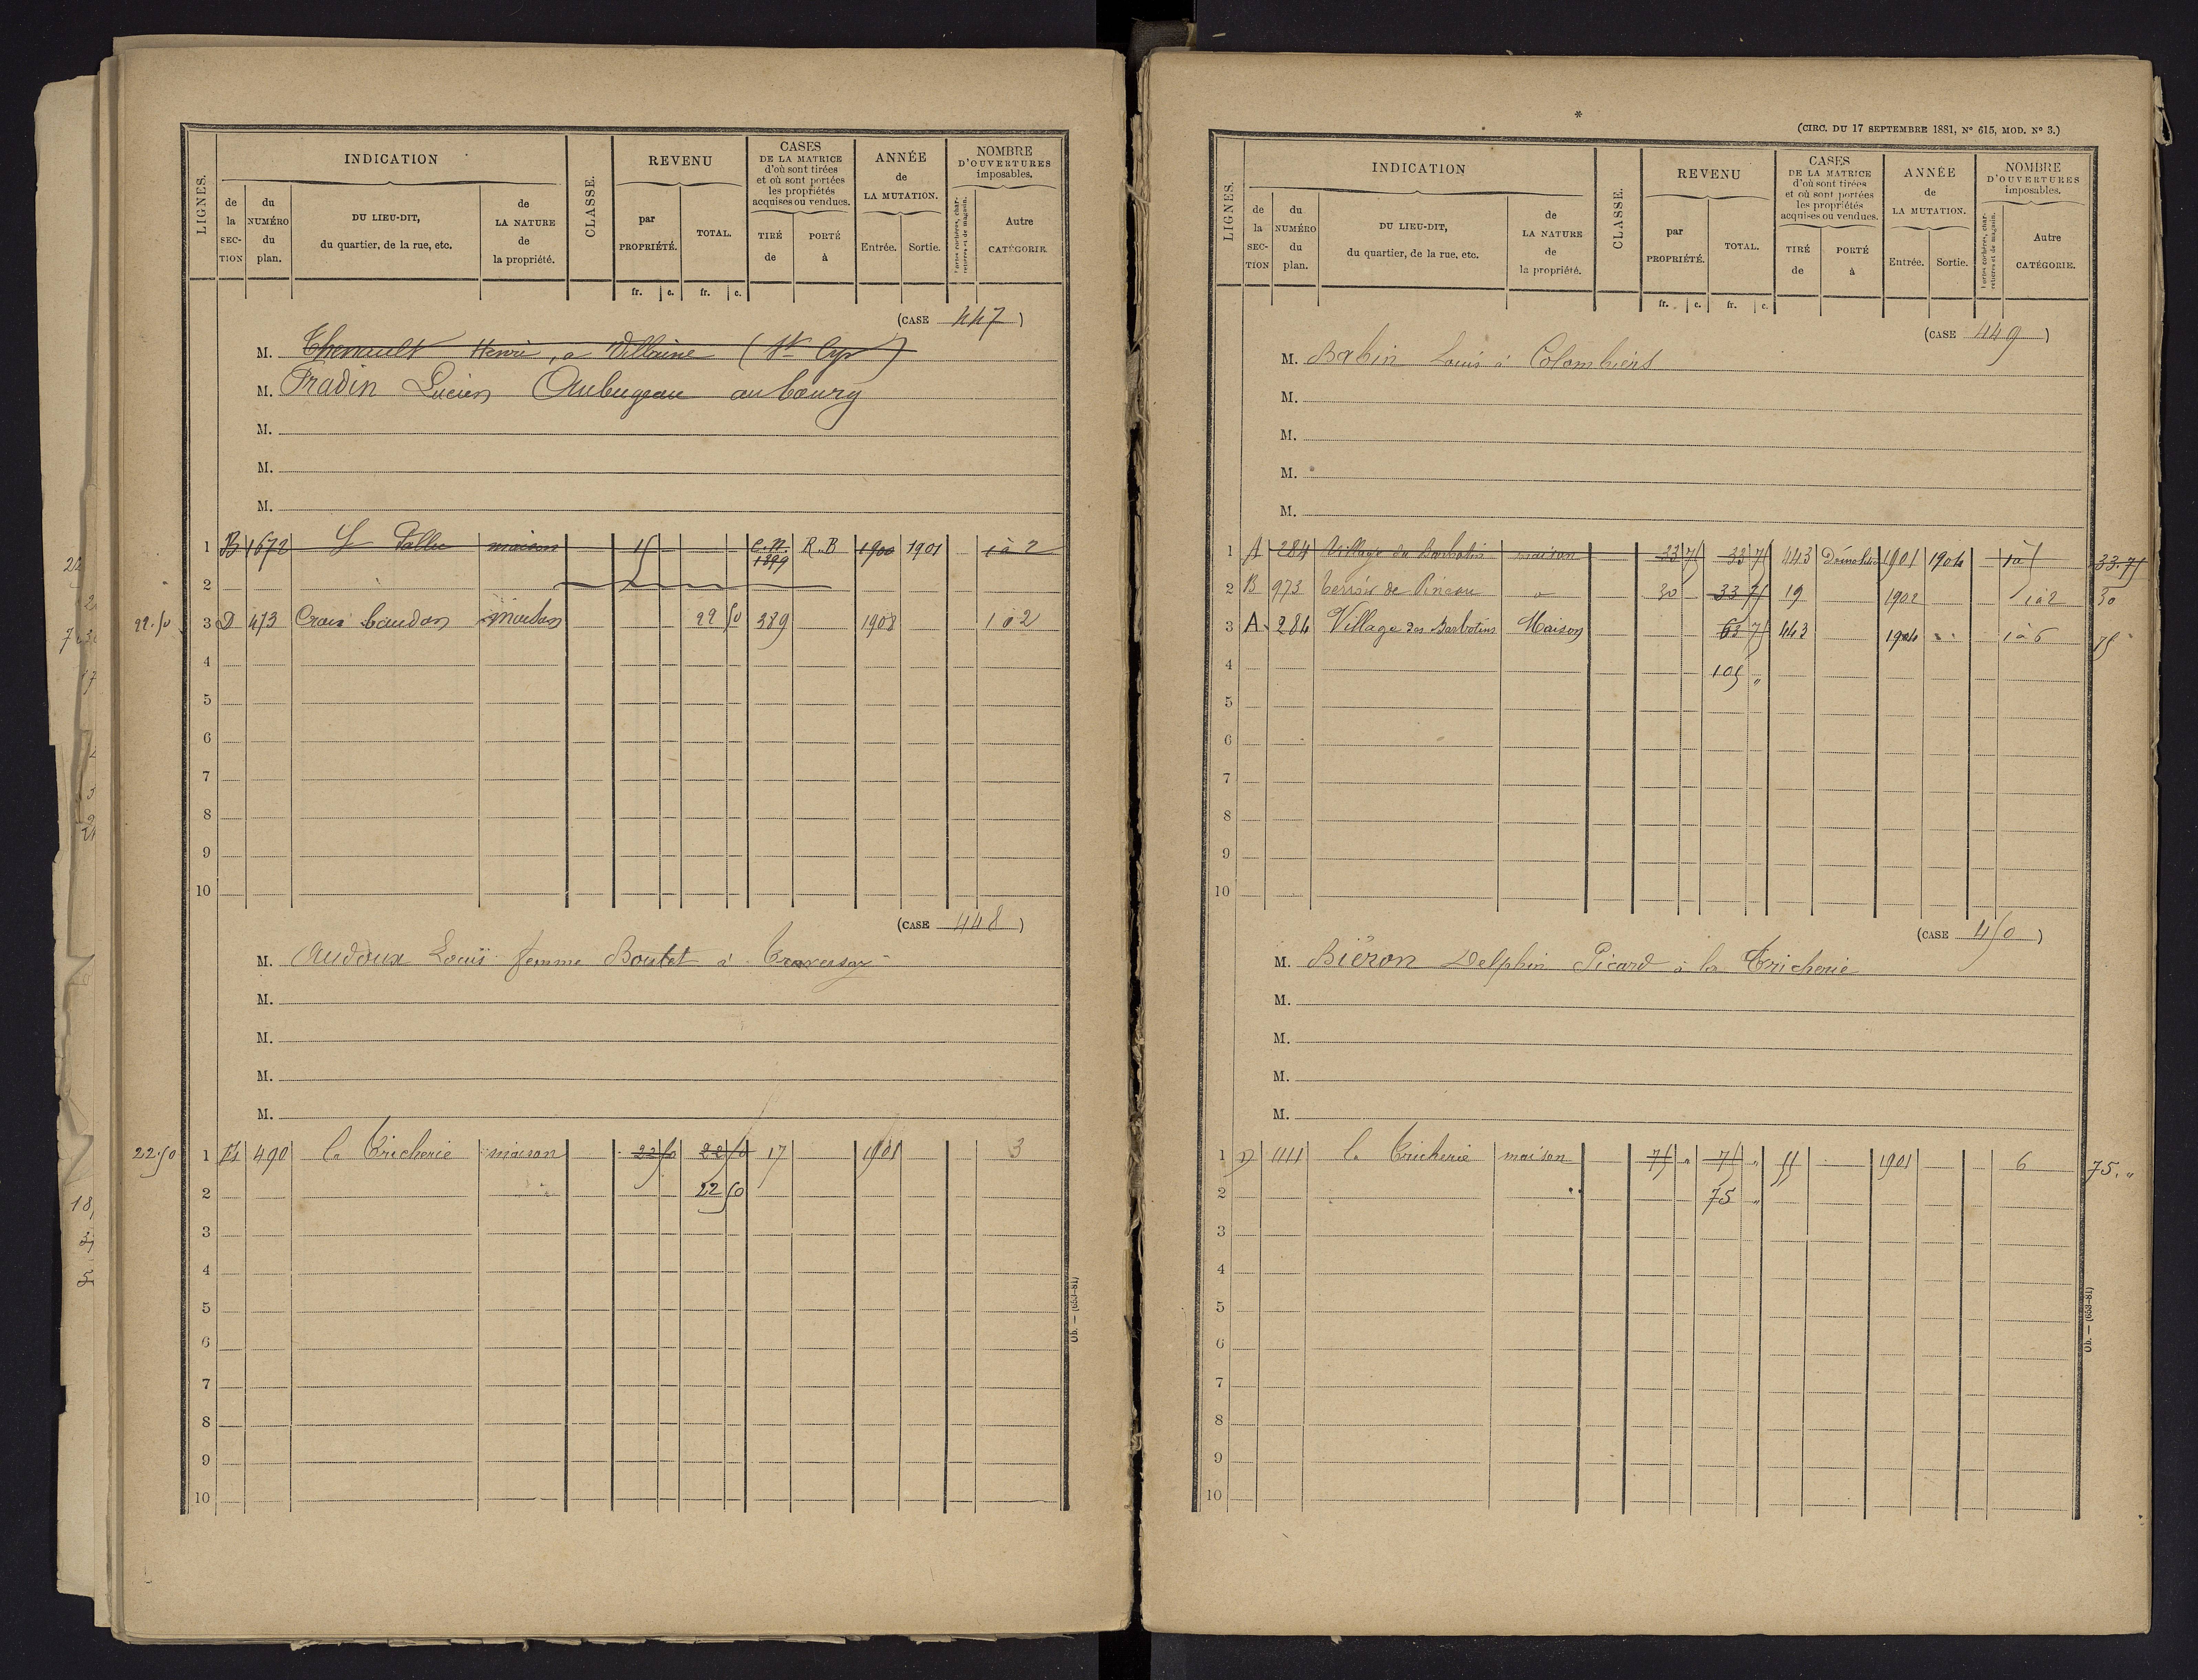 LIGNES.
INDICATION
de la SECTION
du NUMÉRO du plan.
DU LIEU-DIT, du quartier, de la rue, etc.
de LA NATURE de la propriété.
CLASSE.
REVENU
par PROPRIÉTÉ.
TOTAL.
fr. c. fr. c.
CASES DE LA MATRICE d'où sont tirées et où sont portées les propriétés acquises ou vendues.
TIRÉ de
PORTÉ à
ANNÉE de LA MUTATION.
Entrée. Sortie.
NOMBRE D'OUVERTURES imposables.
Portes cochères, charretières et de magasin.
Autre CATÉGORIE.
(CASE 447)
M. Thenault Henri, a Villaine (St Cyr)
M. Fradin Lucien Aubugeau au bourg
M.
M.
M.
1 B 1672 maison 15 C.N. 1899 R.B 1900 1901 1 à 2
2
22.50 3 D 473 Croix baudon maison 22 50 389 1908 1 à 2
4
5
6
7
8
9
10
(CASE 448)
M. Audoux Louis femme Boutet à Traversay
M.
M.
M.
M.
22.50 1 D 490 la Tricherie maison 22 50 22 50 17 1901 3
2 22 50
3
4
5
6
7
8
9
10
Ob. — (653-81)
(CIRC. DU 17 SEPTEMBRE 1881, No 615, MOD. No 3.)
LIGNES.
INDICATION
de la SECTION
du NUMÉRO du plan.
DU LIEU-DIT, du quartier, de la rue, etc.
de LA NATURE de la propriété.
CLASSE.
REVENU
par PROPRIÉTÉ.
TOTAL.
fr. c. fr. c.
CASES DE LA MATRICE d'où sont tirées et où sont portées les propriétés acquises ou vendues.
TIRÉ de
PORTÉ à
ANNÉE de LA MUTATION.
Entrée. Sortie.
NOMBRE D'OUVERTURES imposables.
Portes cochères, charretières et de magasin.
Autre CATÉGORIE.
(CASE 449)
M. Babin Louis à Colombiers
M.
M.
M.
M.
1 A 284 Village du Barbotin maison 33 75 33 75 443 Démolition 1901 1904 1 à 5 33.75
2 B 973 Terroir de Pineau 30 33 75 19 1902 1 à 2 30
3 A 284 Village des Barbotins Maison 63 75 443 1904 1 à 6 75
4 105 "
5
6
7
8
9
10
(CASE 450)
M. Biéron Delphin Picard à la Tricherie
M.
M.
M.
M.
1 D 411 la Tricherie maison 75 " 75 " 55 1901 6 75. "
2 75 "
3
4
5
6
7
8
9
10
Ob. — (653-81)